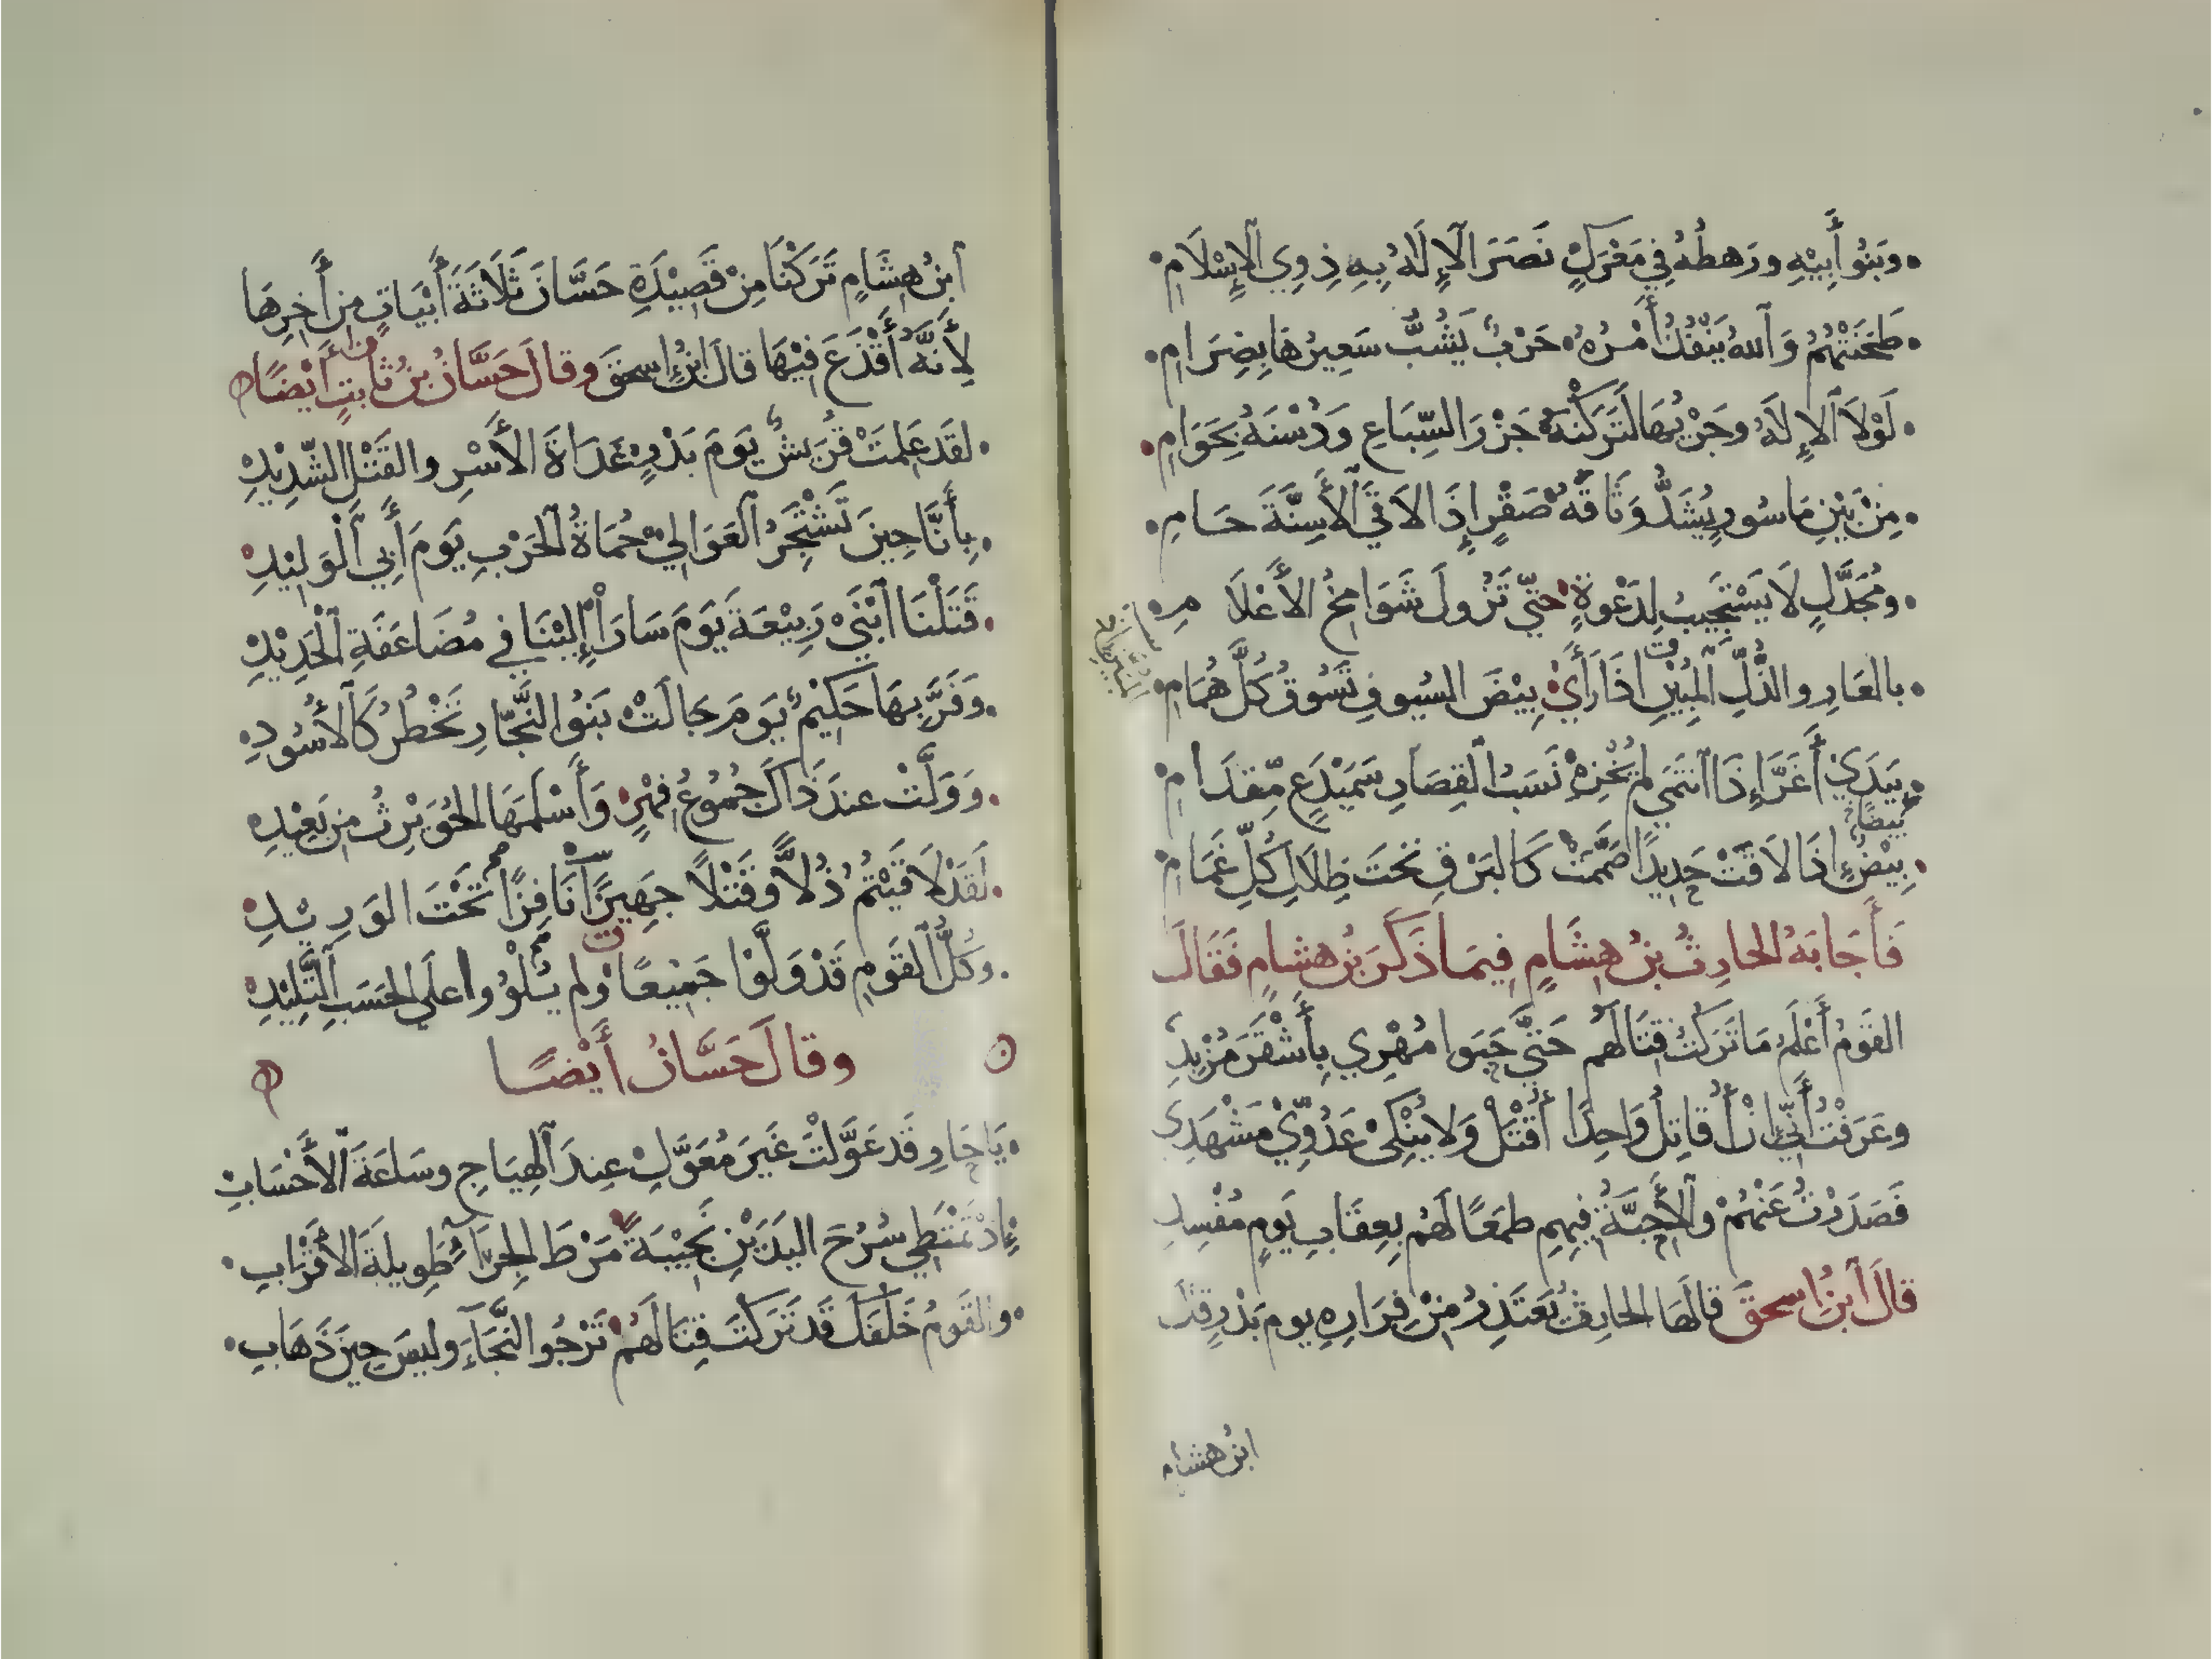 وبَنُو أَبِيْهِ ورَهطُهُ فِي مَعْرَكٍ نَصَرَ الَالِٕلَهُ بِهِ ذِوِي الاسْلَامِ
طَحَنَتْهُمُ وَاللهُ يَنْفُذُ أَمْرُهُ حَرْبٌ يُشَبُّ سَعِيرُهَا بِضِرَامِ
لَوْلَا الالِٕلَهُ وجَرْيُهَا لَتَرَكْنَهُ جَزَرَ السِّبَاعِ وَدُسْنَهُ بِحَوَامِ
مِنْ بَيْنِ مَاسُورٍ يُشَدُّ وَثَاقُهُ صَقْرٍ إِذَا لَاقَى الأَسِنَّةَ حَامِ
ومُجَدَّلٍ لَا يَسْتَجِيبُ لِدَعْوةٍ حتّى تَزُولَ شَوَامِخُ الأَعْلَامِ
بالعَارِ والذُّلِّ المُبِيْنِ اذَا رَأَىْ بِيْضَ السُيوفِ تَسُوقُ كُلَّ هُمَامِ
بِيَدَيْ أَغَرَّ إِذَا انتَمَى لم يُخْزِهِ نَسَبُ القِصَارِ سَمَيْدَعٍ مِّقدَامِ
بيضًا
بِيْضٌ إِذَا لَاقَتْ حَدِيدًا صَمَّمَتْ كَالبَرْقِ تَحْتَ ظِلَالِ كُلِّ غَمَامِ
فَأَجَابَهُ الحارِثُ بنُ هِشَامٍ فِيمَا ذَكَرَ بنُ هشامٍ فَقَالَ
القَومُ أَعْلَمُ مَا تَرَكتُ قِتَالَهُم حَتَّى حَبَوا مُهْرِي بِأَشْقَرَ مُزْبِدِ
وعَرَفْتُ أَنِّي إِنْ أُقَاتِلْ وَاحِدًا أُقْتَلْ وَلا يُنْكِىْ عَدُوِّيْ مَشْهَدِي
فَصَدَدْتُ عَنْهُمْ والأَحِبَّةُ فِيهِمِ طمَعًا لَهُم بِعِقَابِ يَومٍ مُفْسِدِ
قالَ ابنُ اسحقَ قالَهَا الحارِثُ يَعتَذِرُ مِنْ فِرَارِهِ يومَ بَدْرٍ قالَ
ابنُ هشام
ابنُ هِشَامٍ تَرَكْنَا مِنْ قَصِيْدَةِ حَسَّانَ ثَلَاثَةَ أَبْيَاتٍ من أَخِرِهَا
لِأَنَّهُ أَقْذَعَ فِيْهَا قالَ ابنُ إسحقَ وقالَ حَسَّانُ بنُ ثَابتٍ أَيْضًا
لقَد عَلِمَتْ قُرَيشٌ يَومَ بَدْرٍ غَدَاةَ الأَسْرِ والقَتْلِ الشّدِيْدِ
بِأَنَّا حِينَ تَشْتَجِرُ العَوَالِيْ حُمَاةُ الحَرْبِ يَومَ أَبِي الْوَلِيْدِ
قَتَلْنَا ابْنَىْ رَبِيْعَةَ يَوْمَ سَارَا إِلَيْنَا فِي مُضَاعَفَةِ الْحَدِيْدِ
وَفَرَّ بِهَا حَكِيْمٌ يَومَ جَالَتْ بَنُوا النَّجّارِ تَخْطُرُ كَالأُسُودِ
وَوَلَّتْ عندَ ذَاكَ جُمُوعُ فِهْرٍ وَأَسْلَمَهَا الحُوَيْرِثُ مِن بَعِيْدِ
لَقَدْ لَاقَيْتُمُ ذُلاًّ وقَتْلاً جَهِيزًا نَافِذًا تَحْتَ الوَرِيْدِ
وكُلُّ القَومِ قَدْ وَلَّوْا جَمِيْعًا ولم يَلْوُوا عَلَى الحَسَبِ التَّلِيْدِ
وقالَ حَسَّانُ أَيْضًا
يَا حَارِ قَد عَوَّلْتَ غَيرَ مُعَوَّلٍ عِندَ الهِيَاجِ وسَاعَةَ الأَحْسَابِ
إِذْ تَمْتَطِي سُرُحَ اليَدَيْنِ نَجِيْبَةً مَرْطَ الجِرَاءِ طَوِيلَةَ الأَقْرَابِ
والقَومُ خَلْفَكَ قَد تَرَكتَ قِتَالَهُمْ تَرْجُو النَّجَاءَ وليسَ حِينَ ذَهَابِ